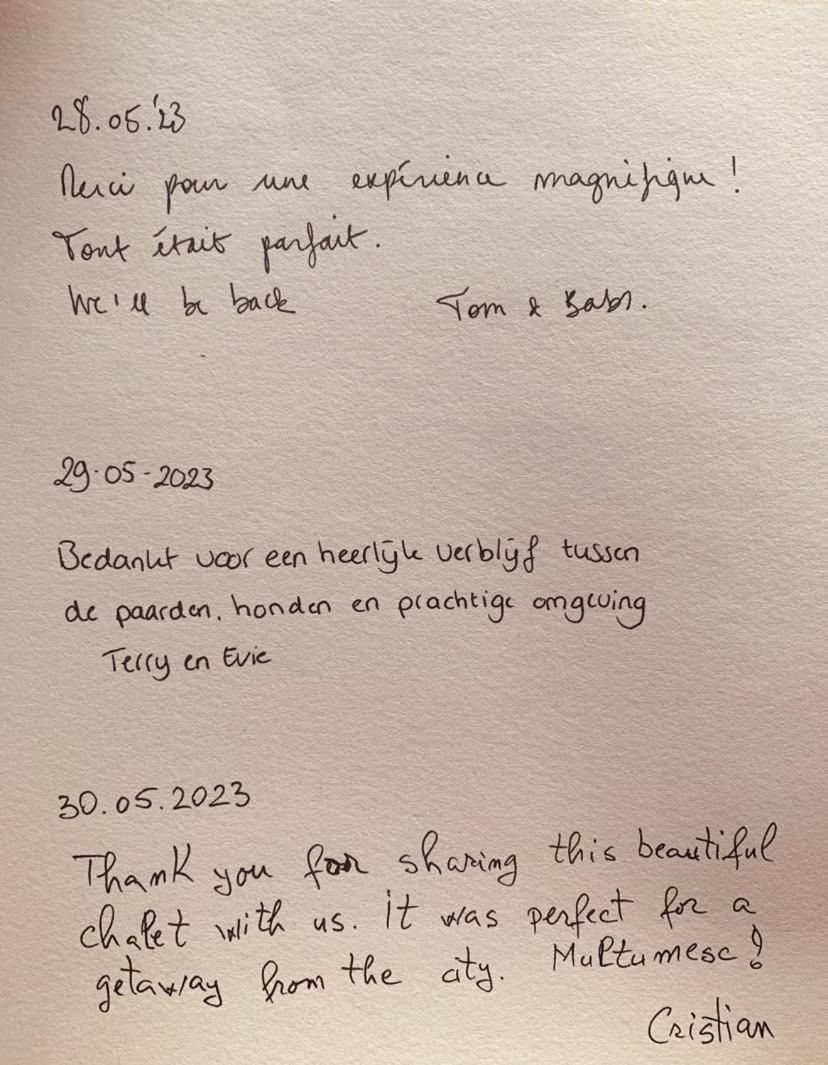 28.05.'23
Merci pour une expérience magnifique !
Tout était parfait.
We'll be back Tom & Babs.
29.05-2023
Bedankt voor een heerlijk verblijf tussen
de paarden, honden en prachtige omgeving
Terry en Evie
30.05.2023
Thank you for sharing this beautiful
chalet with us. It was perfect for a
getaway from the city. Multumesc!
Cristian